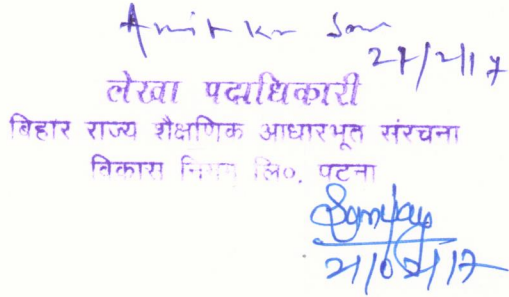 Amit Kr
27/2/17
लेखा पदाधिकारी
बिहार राज्य शैक्षणिक आधारभूत संरचना
विकास निगम लि०, पटना
21/02/17